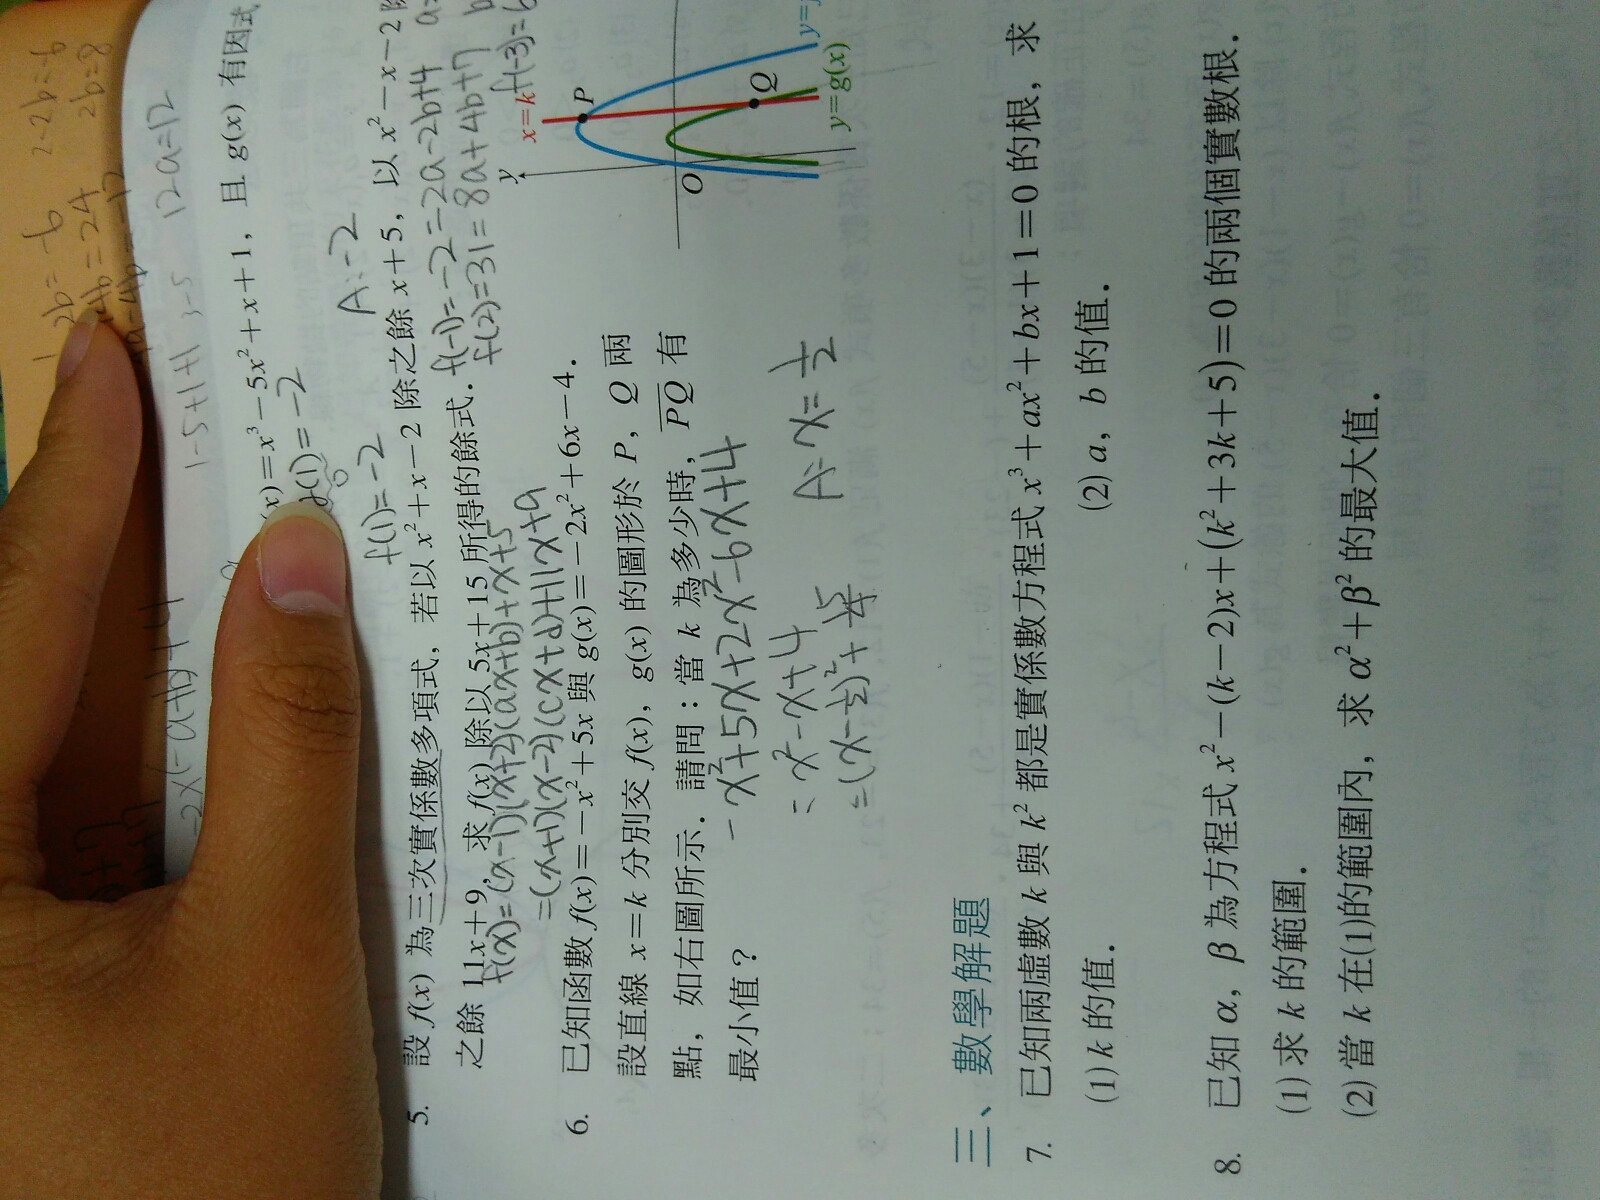 1 2b=-6 2-2b=-6
-4b=24 2b=8
12a=12
1-5+1+1 =-5
-2x(-a+b)+4
(x)=x³-5x²+x+1，且 g(x) 有因式
(1)=-2
f(1)=-2 A:-2
5. 設 f(x) 為三次實係數多項式，若以 x²+x-2 除之餘 x+5，以 x²-x-2 除
之餘 11x+9，求 f(x) 除以 5x+15 所得的餘式．
f(-1)=-2=-2a-2b+4
f(2)=31=8a+4b+7
f(-3)=6
f(x)=(x-1)(x+2)(ax+b)+x+5
=(x+1)(x-2)(cx+d)+11x+9
6. 已知函數 f(x)=-x²+5x 與 g(x)=-2x²+6x-4．
設直線 x=k 分別交 f(x)，g(x) 的圖形於 P，Q 兩
點，如右圖所示．請問：當 k 為多少時，PQ 有
最小值？
-x²+5x+2x²-6x+4
=x²-x+4
=(x-1/2)²+15/4
A:x=1/2
y
x=k
P
O
Q
y=g(x)
三、數學解題
7. 已知兩虛數 k 與 k² 都是實係數方程式 x³+ax²+bx+1=0 的根，求
(1) k 的值． (2) a，b 的值．
8. 已知 α，β 為方程式 x²-(k-2)x+(k²+3k+5)=0 的兩個實數根．
(1) 求 k 的範圍．
(2) 當 k 在(1)的範圍內，求 α²+β² 的最大值．